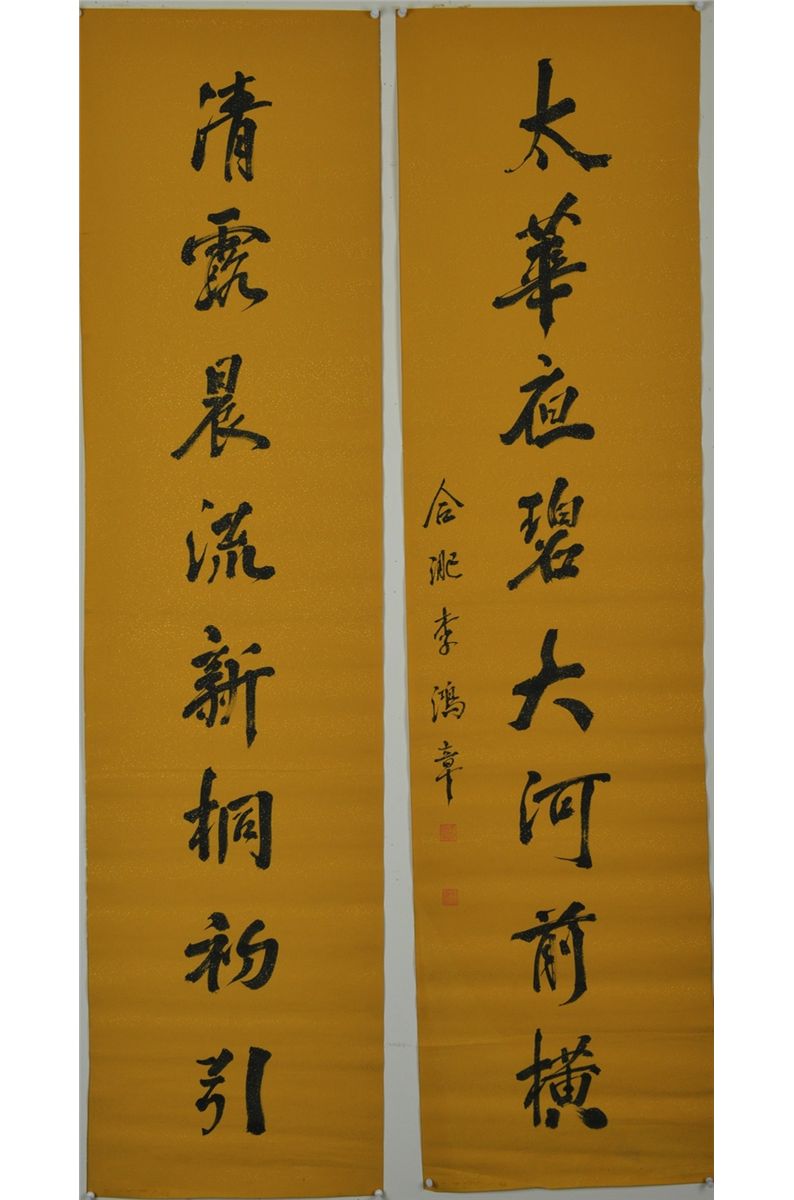 清露晨流新桐初引
太華亱碧大河前橫
合淝李鴻章